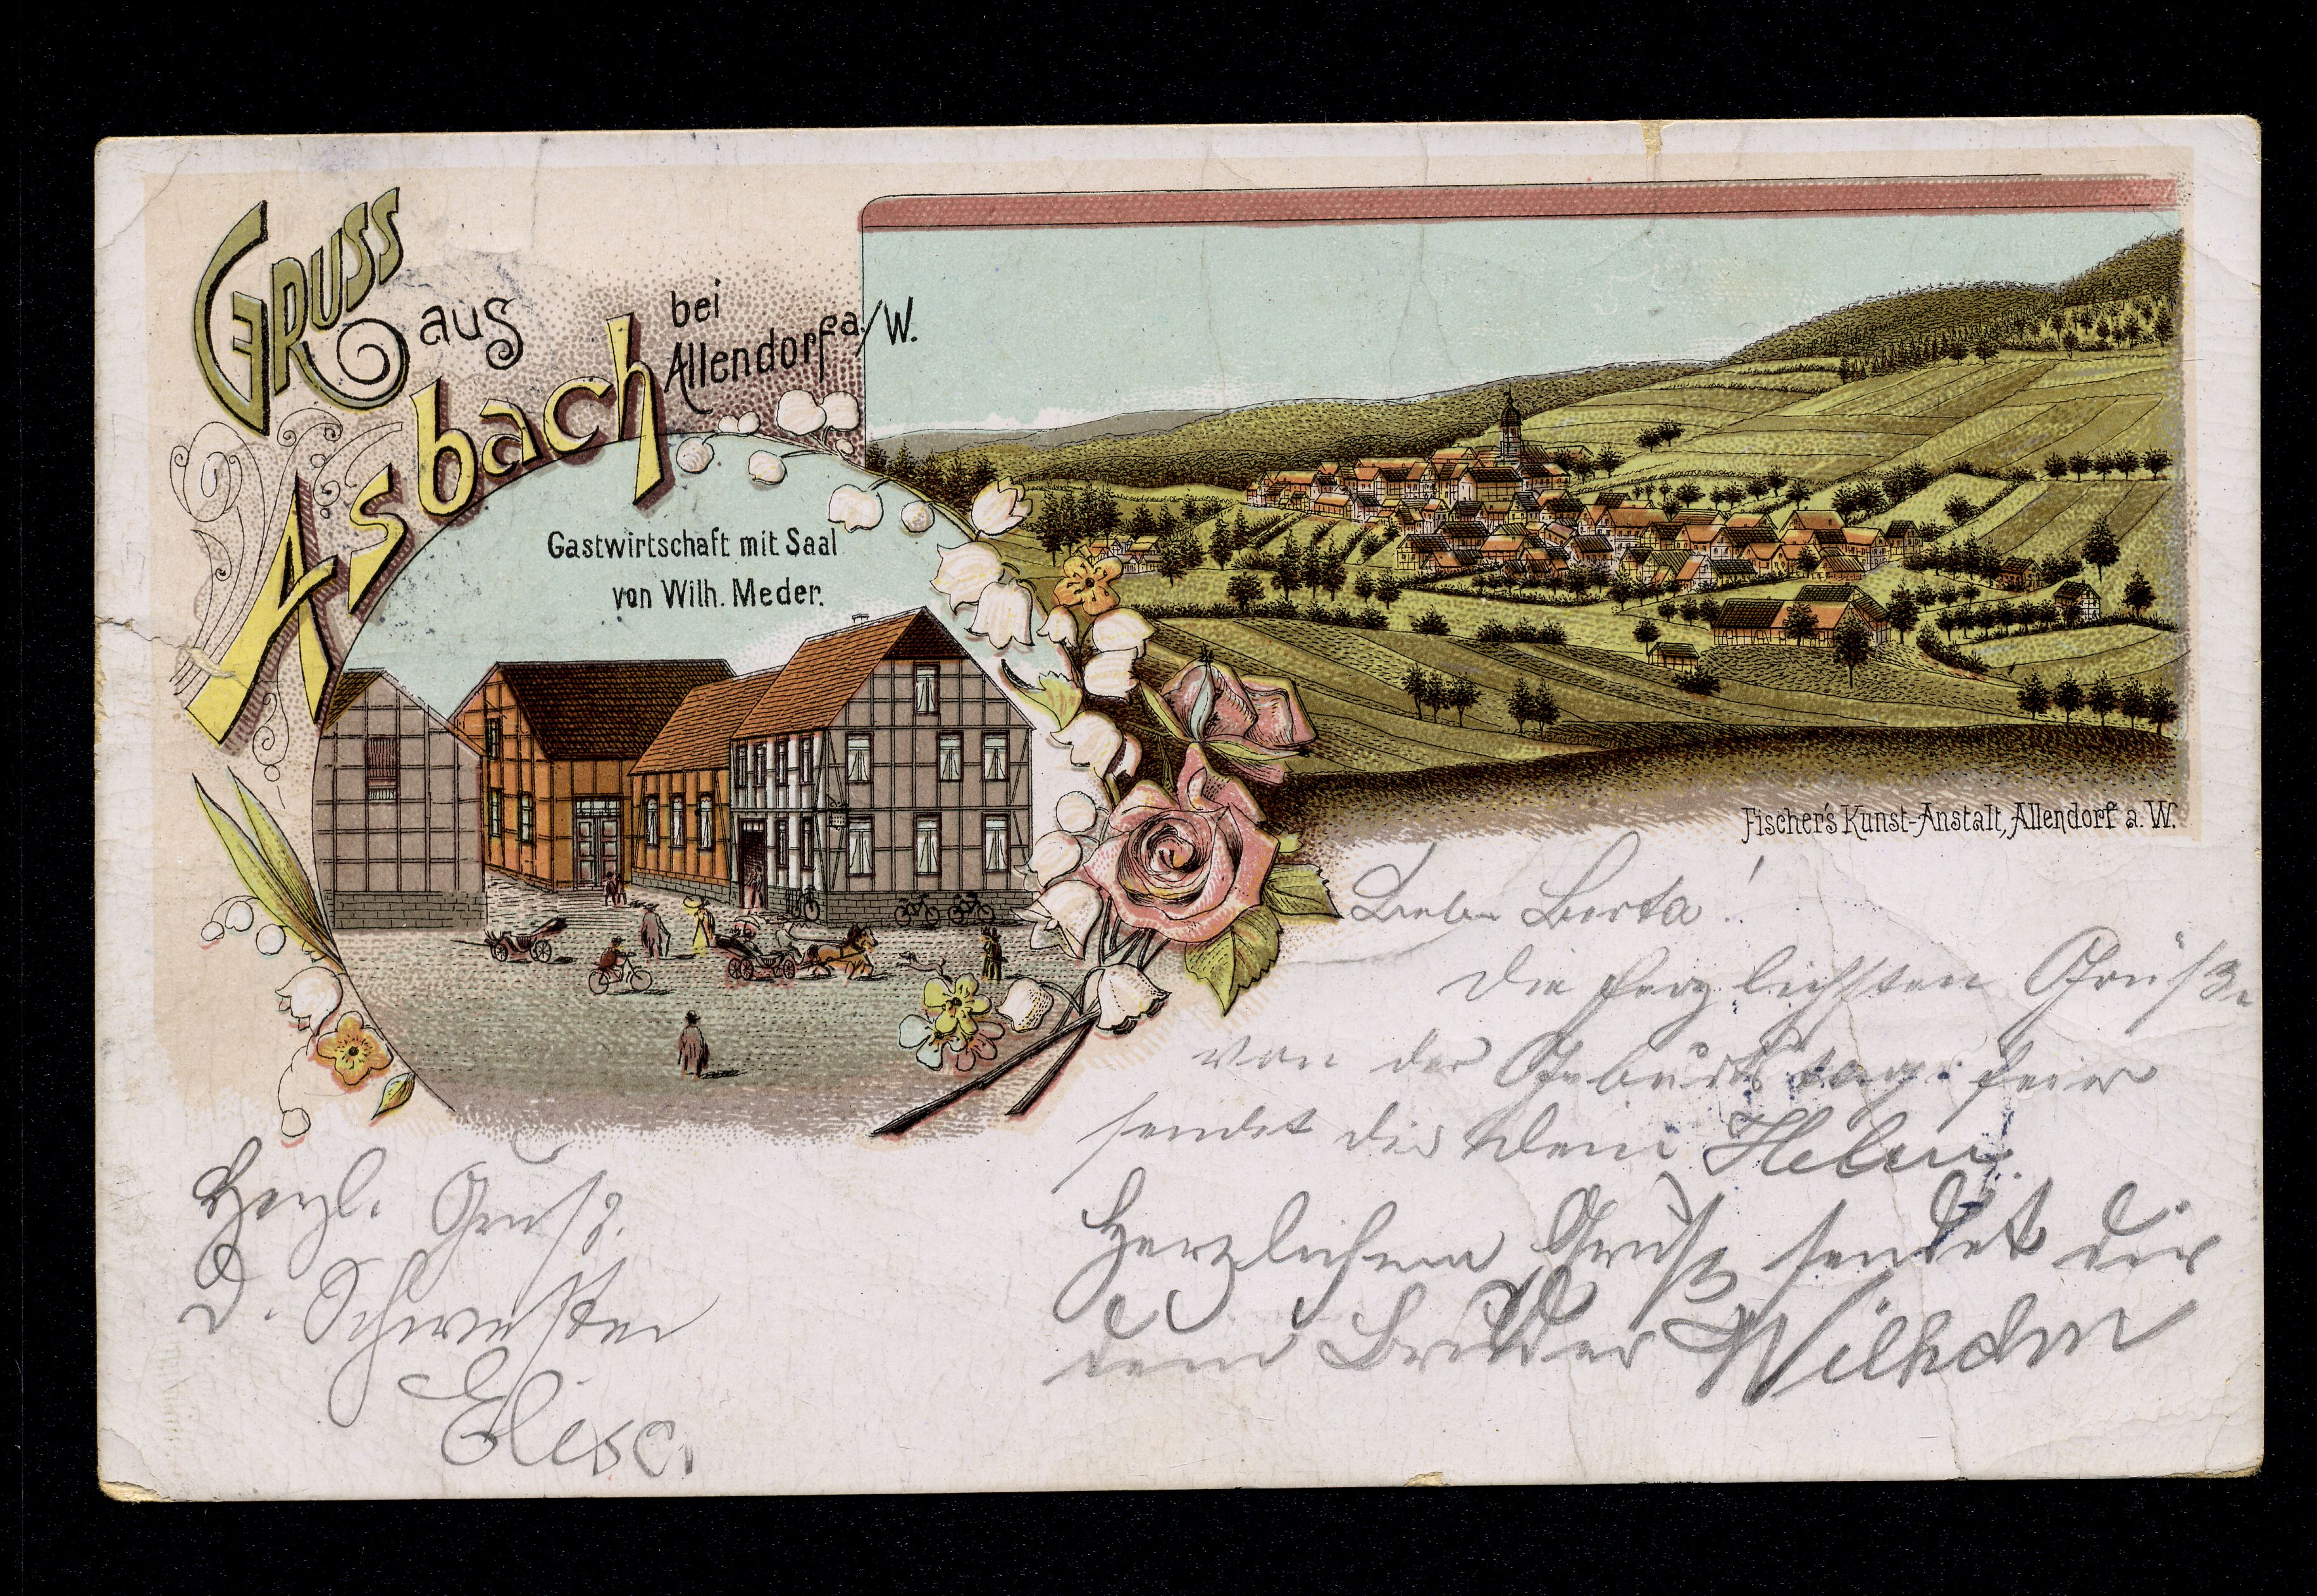 GRUSS
aus
Asbach
bei
Allendorf a./W.
Gastwirtschaft mit Saal
von Wilh. Meder.
Fischer's Kunst-Anstalt, Allendorf a. W.
Liebe Berta!
Die herzlichsten Grüße
von der Geburtstagsfeier
sendet dir Dein
Herzlichen Gruß sendet dir
dein Bruder Wilhelm
Herzl. Gruß.
D. Schwester
Elise.